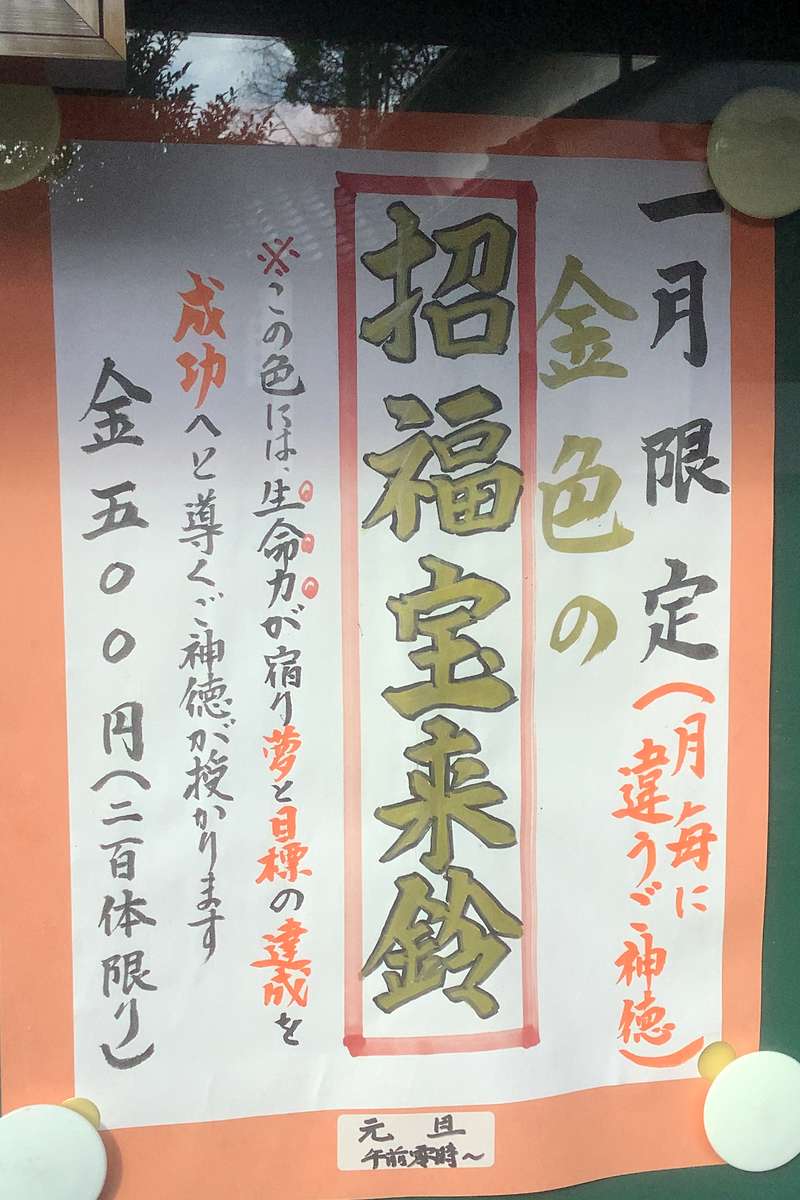 一月限定(月毎に
違うご神徳)
金色の
招福宝来鈴
※この色には、生命力が宿り夢と目標の達成を
成功へと導くご神徳が授かります
金五〇〇円(二百体限り)
元旦
午前零時~